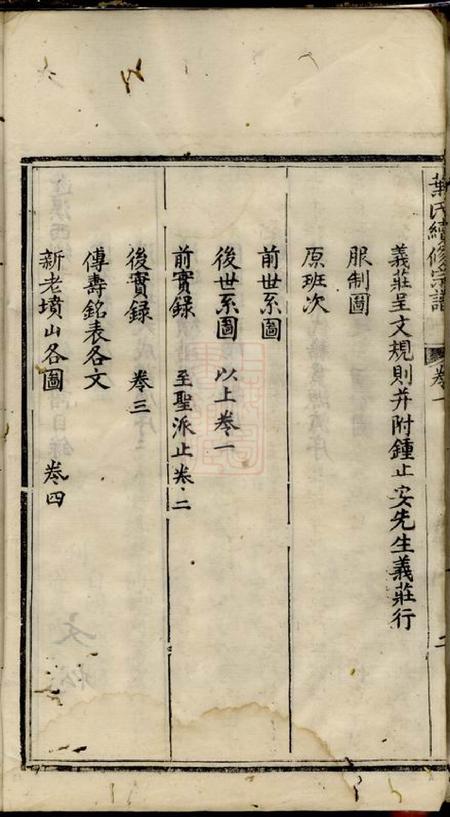 葉氏續修宗譜 卷一 二
義莊呈文規則并附鍾止安先生義莊行
服制圖
原班次
前世系圖
後世系圖 以上卷一
前實録 至聖派止卷二
後實録 卷三
傳壽銘表各文
新老墳山各圖 卷四